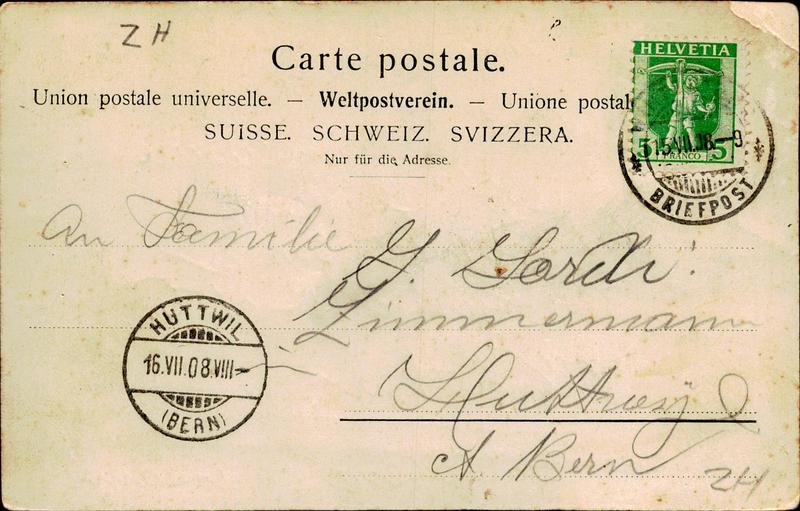 ZH
Carte postale.
Union postale universelle. — Weltpostverein. — Unione postal
SUISSE. SCHWEIZ. SVIZZERA.
Nur für die Adresse.
HELVETIA
5 5
FRANCO
15.VII.08.–9
BRIEFPOST
An Familie G. Gordi
Zimmermann
HUTTWIL
16.VII.08.VIII–
(BERN)
Bern
ZH